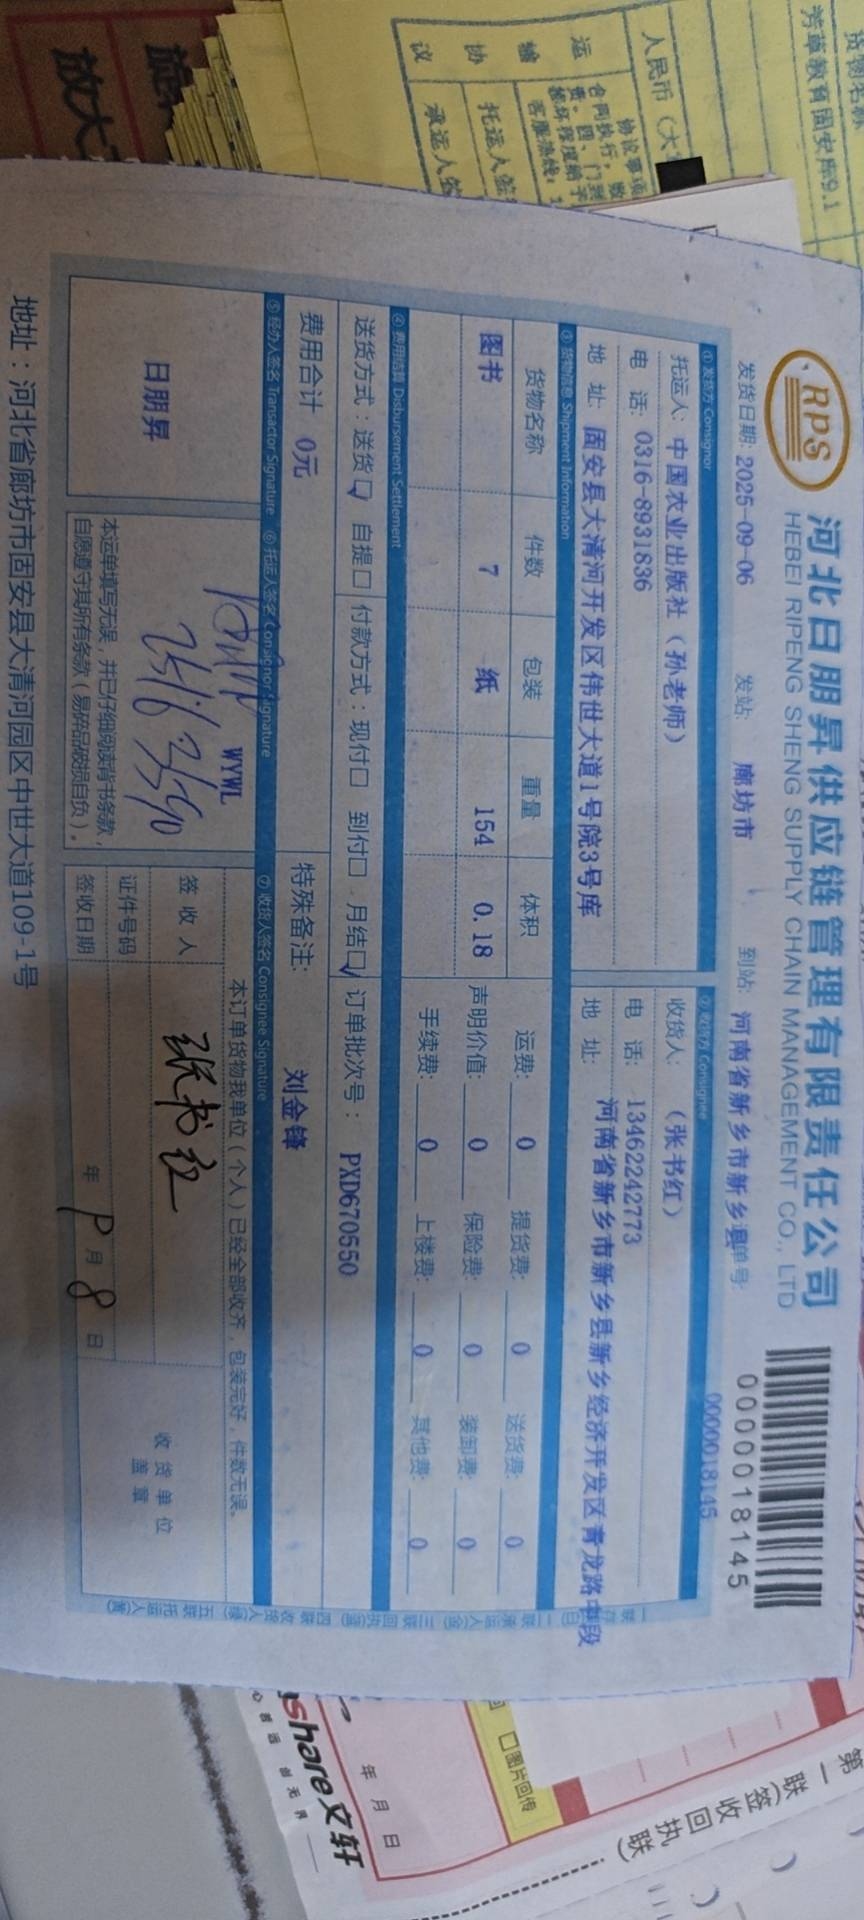 RPS
河北日朋昇供应链管理有限责任公司
HEBEI RIPENG SHENG SUPPLY CHAIN MANAGEMENT CO., LTD
0000018145
发货日期: 2025-09-06 发站: 廊坊市 到站: 河南省新乡市新乡县 单号: 0000018145
① 发货方 Consignor
② 收货方 Consignee
托运人: 中国农业出版社（孙老师）
收货人: （张书红）
电 话: 0316-8931836
电 话: 13462242773
地 址: 固安县大清河开发区伟世大道1号院3号库
地 址: 河南省新乡市新乡县新乡经济开发区青龙路中段
③ 货物信息 Shipment Information
货物名称 件数 包装 重量 体积
图书 7 纸 154 0.18
运费: 0 提货费: 0 送货费: 0
声明价值: 0 保险费: 0 装卸费: 0
手续费: 0 上楼费: 0 其他费: 0
④ 费用结算 Disbursement Settlement
送货方式：送货☑ 自提□ 付款方式：现付□ 到付□ 月结☑ 订单批次号： PXD670550
费用合计 0元
特殊备注: 刘金锋
⑤ 经办人签名 Transactor Signature ⑥ 托运人签名 Consignor Signature ⑦ 收货人签名 Consignee Signature
日朋昇
WYWL
本运单填写无误，并已仔细阅读背书条款，
自愿遵守其所有条款（易碎品破损自负）。
本订单货物我单位（个人）已经全部收齐，包装完好，件数无误。
签收人 张书红
证件号码
签收日期 年 9月8日
收货单位
盖章
地址：河北省廊坊市固安县大清河园区中世大道109-1号
芳草教育固安库9.1
人民币（大
运 输 协 议
托运人签
承运人签
客服热线：
放大
share文轩
年 月 日
□图片回传
第一联（签收回执联）